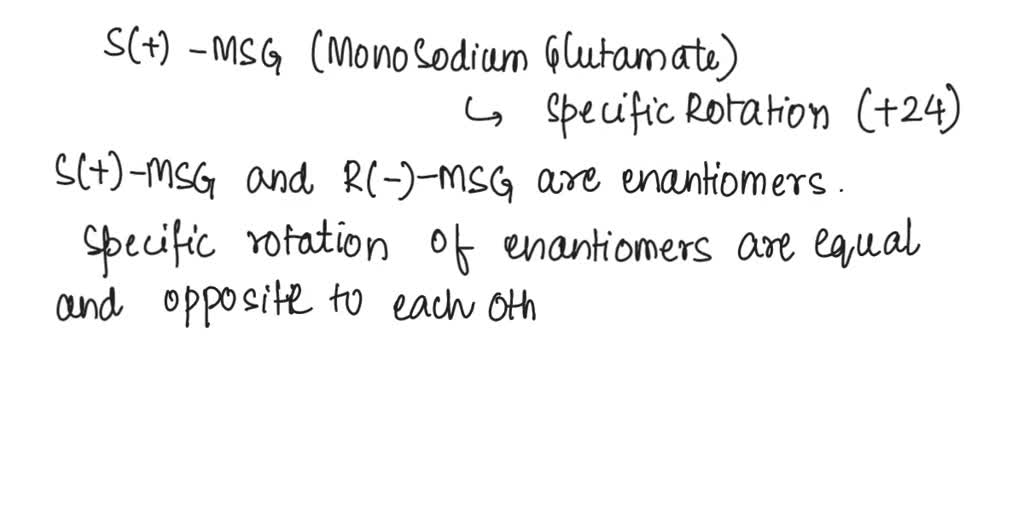 S(+) -MSG (Monosodium Glutamate)
↳ Specific Rotation (+24)
S(+)-MSG and R(-)-MSG are enantiomers.
Specific rotation of enantiomers are equal
and opposite to each oth